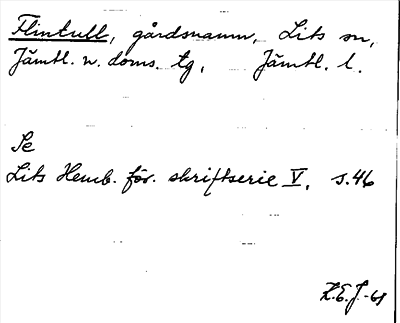 Flintull, gårdsnamn, Lits sn,
Jämtl. n. doms. tg, Jämtl. l.
Se
Lits Hemb. för. skriftserie V, s. 46
K.E.J.-61